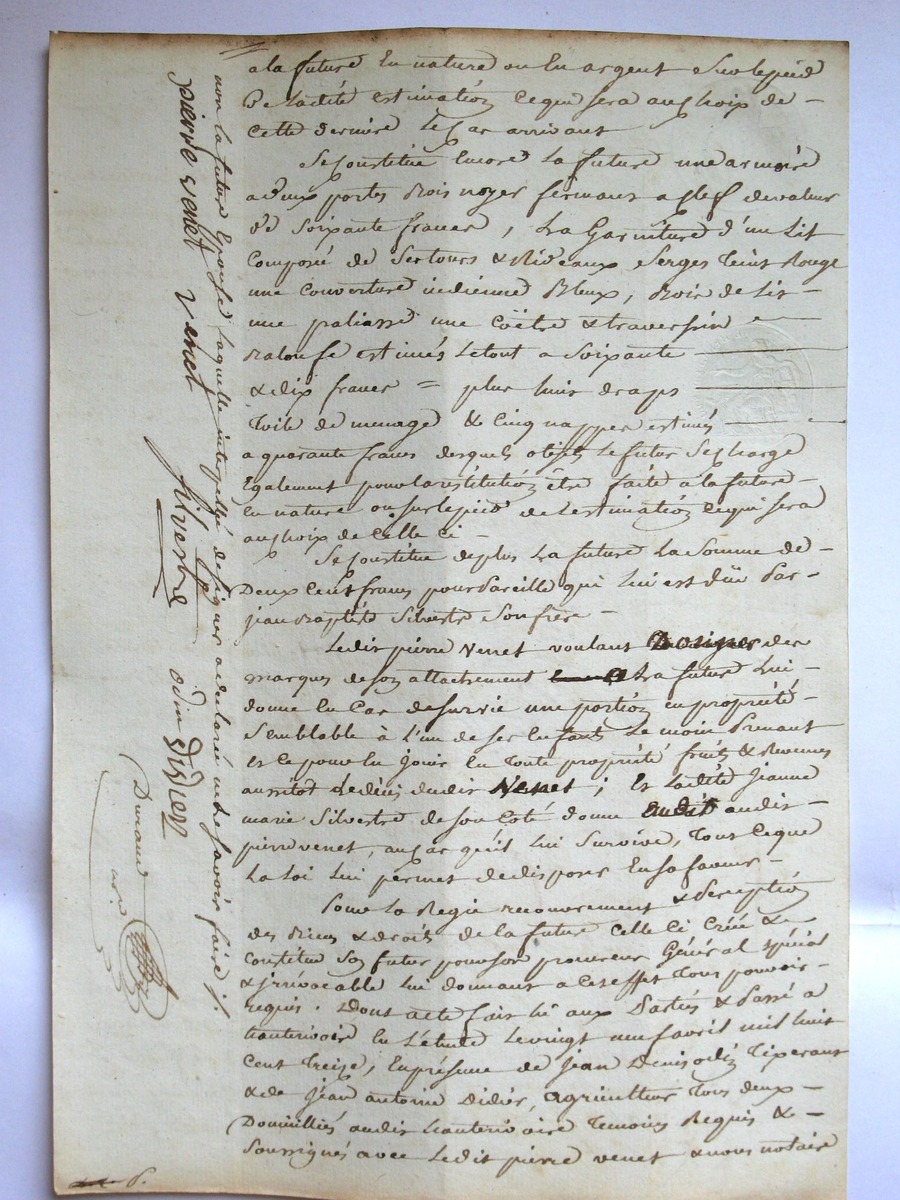 a la future En nature ou En argent Sur le pied
De Ladite estimation Ce qui sera au choix de –
Cette derniere le Cas arrivant
Se Constitue Encore La future une armoire
a deux portes Bois noyer fermant a clef de valeur
de Soixante francs, La Garniture d'un Lit
Composé de Sertours & Rideaux Serges Teint Rouge
une Couverture indienne Bleux, Bois de Lit –
une paliasse une Coëtre & traversin
Baloufe estimés Le tout a Soixante
& dix francs = plus huit draps
Toile de menage & Cinq nappes estimés
a quarante francs desquels objets Le futur Se charge
Egalement pour la restitution être faite a la future –
En nature ou sur le pied de L'estimation Ce qui sera
au choix de Celle Ci –
Se Constitue de plus La future La Somme de –
Deux Cent francs pour Pareille qui Lui est düe Par –
jean Baptiste Silvestre Son frère –
Ledit pierre Venet voulant Donner des
marques de son attachement a La future Lui
donne En Cas de Survie une portion en propriété –
Semblable à L'un de ses Enfants Le moin Prenant
et ce pour En jouir En Toute propriété fruits & Revenus
aussitot Le décès dudit Venet ; Et Ladite Jeanne
marie Silvestre de son Coté donne audit –
pierre venet, au Cas qu'il Lui Survive, Tous Ce que
La Loi Lui permet de disposer En sa faveur –
Pour La Regie recouvrement & Perception
des Biens & droits de la future Celle Ci Créé &
Constitue Son futur pour son procureur Général spécial
& irrévocable Lui donnant a Cet effet Tous pouvoir –
requis. Dont acte fait lu aux Parties & Passé a
hauterivoire En L'étude Le vingt neuf avril mil huit
Cent Treize, En présence de Jean Denis odin Tixerant
& de Jean antoine Didier, agriculteur Tous deux –
Domiciliés audit hauterivoire Temoins Requis & –
Soussignés avec Ledit pierre venet & nous notaire
non la future Epouse laquelle interpellé de signer a déclaré ne le savoir faire
pierre venet venet silvestre odin Didier
Durand